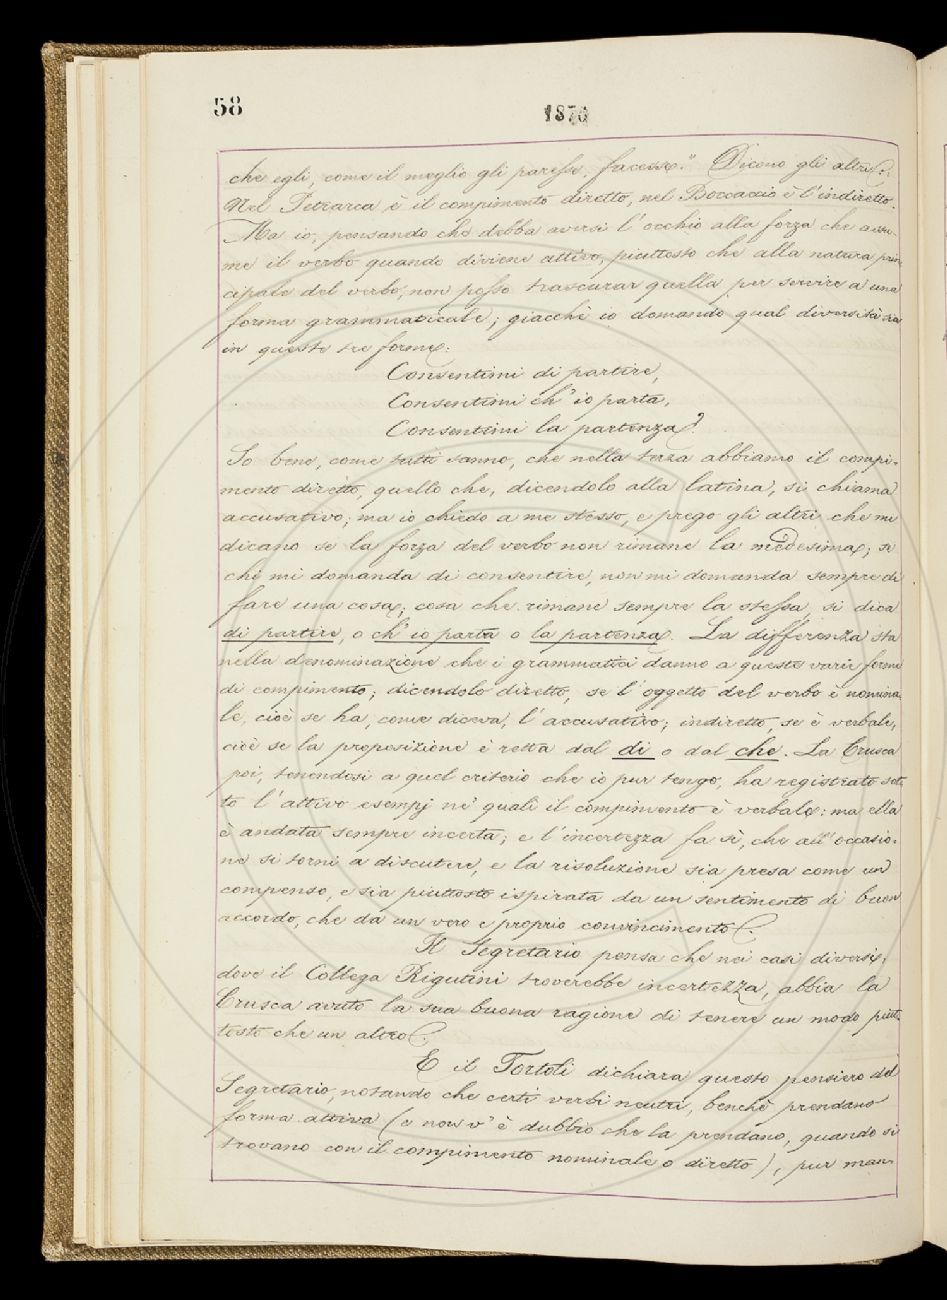 58
1870
che egli, come il meglio gli paresse, facesse." Dicono gli altri:
Nel Petrarca è il compimento diretto, nel Boccaccio è l'indiretto.
Ma io, pensando che debba aversi l'occhio alla forza che assu-
me il verbo quando diviene attivo, piuttosto che alla natura prin-
cipale del verbo, non posso trascurar quella per servire a una
forma grammaticale; giacchè io domando qual diversità sia
in queste tre forme:
Consentimi di partire,
Consentimi ch'io parta,
Consentimi la partenza?
So bene, come tutti sanno, che nella terza abbiamo il compi-
mento diretto, quello che, dicendolo alla latina, si chiama
accusativo; ma io chiedo a me stesso, e prego gli altri che mi
dicano se la forza del verbo non rimane la medesima; se
chi mi domanda di consentire, non mi domanda sempre di
fare una cosa; cosa che rimane sempre la stessa, si dica
di partire, o ch'io parta o la partenza. La differenza sta
nella denominazione che i grammatici danno a queste varie forme
di compimento; dicendolo diretto, se l'oggetto del verbo è nomina-
le, cioè se ha, come diceva, l'accusativo; indiretto, se è verbale,
cioè se la proposizione è retta dal di o dal che. La Crusca
poi, tenendosi a quel criterio che io pur tengo, ha registrato sot-
to l'attivo esempj ne' quali il compimento è verbale: ma ella
è andata sempre incerta; e l'incertezza fa sì, che all'occasio-
ne si torni a discutere, e la risoluzione sia presa come un
compenso, e sia piuttosto ispirata da un sentimento di buon
accordo, che da un vero e proprio convincimento.
Il Segretario pensa che nei casi diversi,
dove il Collega Rigutini troverebbe incertezza, abbia la
Crusca avuto la sua buona ragione di tenere un modo piut-
tosto che un altro.
E il Tortoli dichiara questo pensiero del
Segretario, notando che certi verbi neutri, benchè prendano
forma attiva (e non v'è dubbio che la prendano, quando si
trovano con il compimento nominale o diretto), pur man-